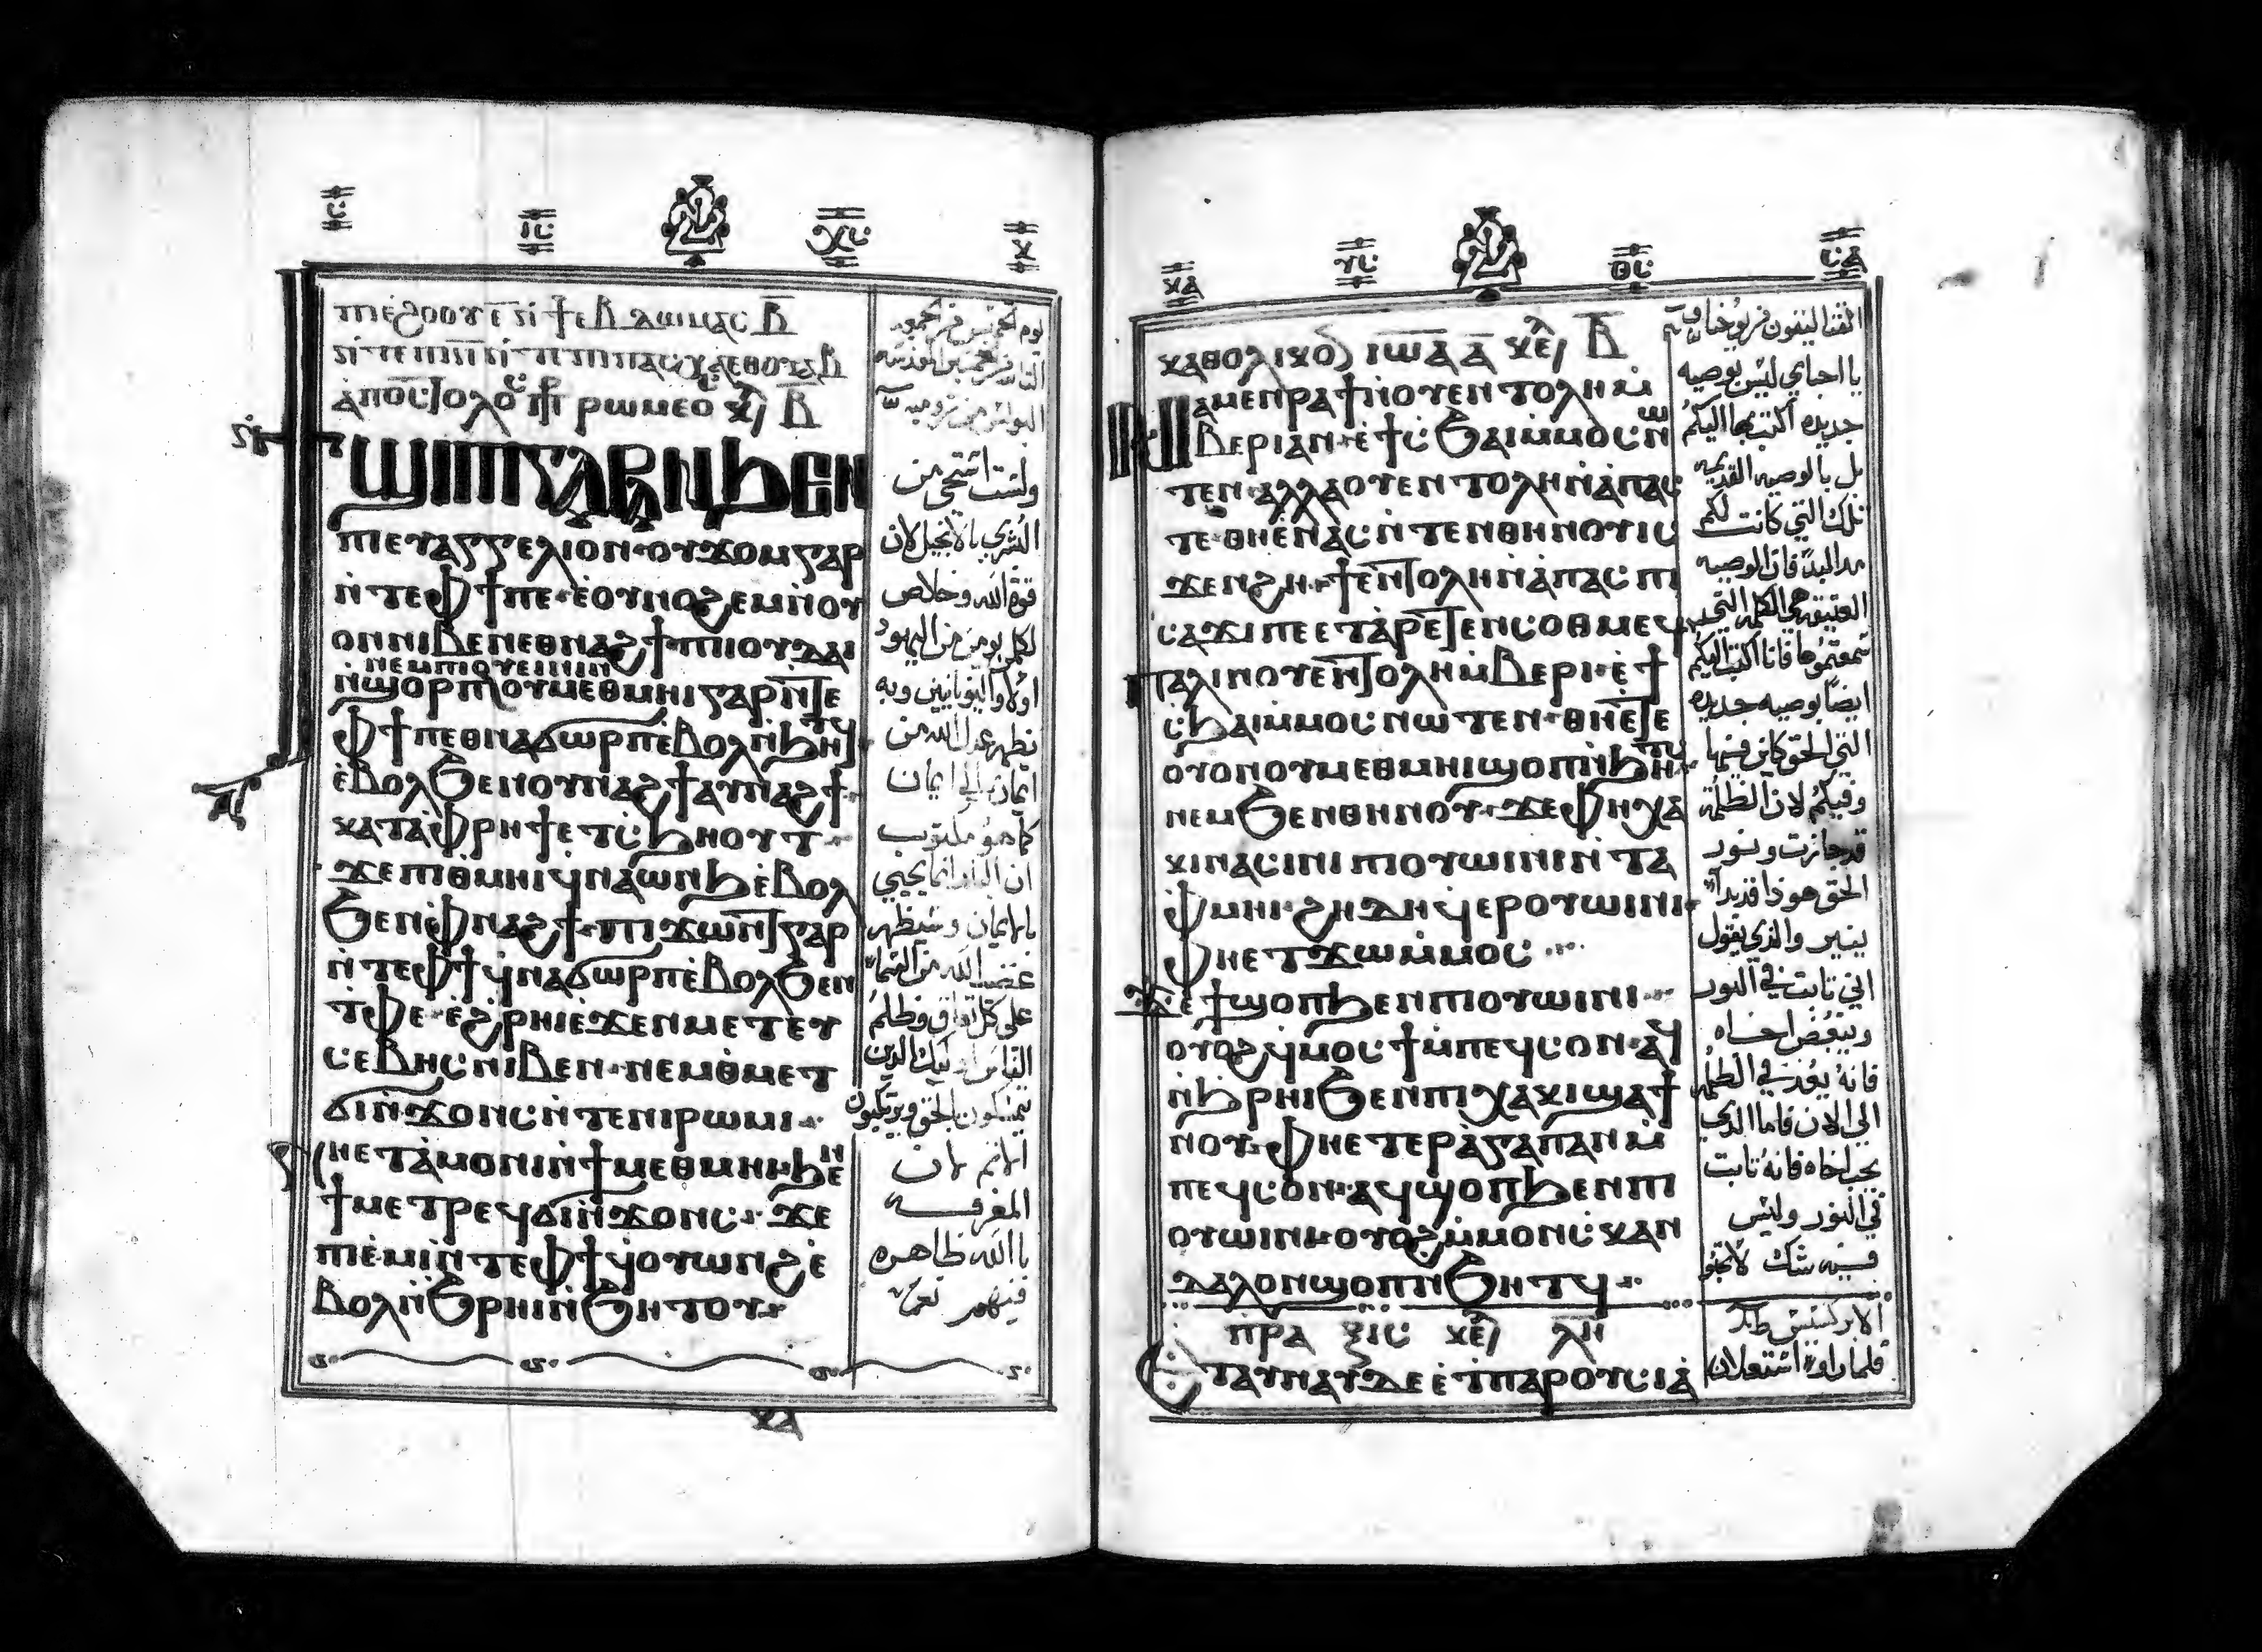 ⲥ̅ ⲓⲥ ⲭⲥ ⲕ̅
ⲡⲓⲉϩⲟⲟⲩ ⲉ̅
ⲁⲡⲟⲥⲧⲟⲗⲟⲥ ⲣⲱⲙⲉⲟ ⲕⲉ̅ ⲃ̅
ϯϣⲓⲡⲓ ⲅⲁⲣ ⲁⲛ ϧⲉⲛ
ⲡⲓⲉⲩⲁⲅⲅⲉⲗⲓⲟⲛ ⲟⲩϫⲟⲙ ⲅⲁⲣ
ⲛ̀ⲧⲉ ⲫϯ ⲡⲉ ⲉⲟⲩⲛⲟϩⲉⲙ ⲛ̀ⲟⲩ
ⲟⲛ ⲛⲓⲃⲉⲛ ⲉⲑⲛⲁϩϯ ⲡⲓⲓⲟⲩⲇⲁⲓ
ⲛⲉⲙ ⲡⲓⲟⲩⲉⲓⲛⲓⲛ
ⲛ̀ϣⲟⲣⲡ ⲟⲩⲙⲉⲑⲙⲏⲓ ⲅⲁⲣ ⲛ̀ⲧⲉ
ⲫϯ ⲡⲉⲑⲛⲁϭⲱⲣⲡ ⲉⲃⲟⲗ ⲛ̀ϧⲏⲧϥ
ⲉ̀ⲃⲟⲗϧⲉⲛ ⲟⲩⲛⲁϩϯ ⲁⲩⲛⲁϩϯ
ⲕⲁⲧⲁ ⲫⲣⲏϯ ⲉⲧⲥϧⲏⲟⲩⲧ
ϫⲉ ⲡⲓⲑⲙⲏⲓ ϥⲛⲁⲱⲛϧ ⲉ̀ⲃⲟⲗ
ϧⲉⲛ ⲫⲛⲁϩϯ ⲡⲓϫⲱⲛⲧ ⲅⲁⲣ
ⲛ̀ⲧⲉ ⲫϯ ϥⲛⲁϭⲱⲣⲡ ⲉ̀ⲃⲟⲗϧⲉⲛ
ⲧⲫⲉ ⲉ̀ϩⲣⲏⲓ ⲉϫⲉⲛ ⲙⲉⲧⲉⲩ
ⲥⲉⲃⲏⲥ ⲛⲓⲃⲉⲛ ⲛⲉⲙ ⲑⲙⲉⲧ
ϭⲓⲛ̀ϫⲟⲛⲥ ⲛ̀ⲧⲉ ⲛⲓⲣⲱⲙⲓ
ⲛⲏ ⲉⲧⲁⲙⲟⲛⲓ ⲛ̀ϯⲙⲉⲑⲙⲏⲓ ϧⲉⲛ
ϯⲙⲉⲧⲣⲉϥϭⲓⲛ̀ϫⲟⲛⲥ ϫⲉ
ⲡⲓⲉ̀ⲙⲓ ⲛ̀ⲧⲉ ⲫϯ ϥⲟⲩⲱⲛϩ ⲉ̀
ⲃⲟⲗ ⲛ̀ϧⲣⲏⲓ ⲛ̀ϧⲏⲧⲟⲩ
ولست استحي من
البشري بالانجيل لان
قوة الله وخلاص
لكل يومن من اليهود
اولا واليونانيين وبه
يظهر عدل الله من
ايمان الي ايمان
كما هو مكتوب
ان البار انما يحيي
بالايمان وسيظهر
غضب الله من السماء
على كل نفاق وظلم
الناس اوليك الذين
يتمسكون بالحق ويرتكبون
الاثم لان
المعرفه
بالله ظاهره
فيهم
ⲕⲁ
ⲕⲁ ⲩⲥ ⲑⲥ
ⲕⲁⲑⲟⲗⲓⲕⲟⲛ ⲓⲱⲁ ⲁ̅ ⲕⲉ̅ ⲃ̅
ⲛⲁⲙⲉⲛⲣⲁϯ ⲛⲟⲩⲉⲛⲧⲟⲗⲏ ⲙ̀
ⲃⲉⲣⲓ ⲁⲛ ⲉϯⲥϧⲁⲓ ⲙ̀ⲙⲟⲥ ⲛⲱ
ⲧⲉⲛ ⲁⲗⲗⲁ ⲟⲩⲉⲛⲧⲟⲗⲏ ⲛ̀ⲁⲡⲁⲥ
ⲧⲉ ⲑⲏ ⲉ̀ⲛⲁⲥ ⲛ̀ⲧⲉⲛ ⲑⲏⲛⲟⲩ ⲓⲥ
ϫⲉⲛ ϩⲏ ϯⲉⲛⲧⲟⲗⲏ ⲛ̀ⲁⲡⲁⲥ ⲡⲓ
ⲥⲁϫⲓ ⲡⲉ ⲉⲧⲁⲣⲉⲧⲉⲛⲥⲟⲑⲙⲉϥ
ⲡⲁⲗⲓⲛ ⲟⲩⲉⲛⲧⲟⲗⲏ ⲙ̀ⲃⲉⲣⲓ ⲉϯ
ⲥϧⲁⲓ ⲙ̀ⲙⲟⲥ ⲛⲱⲧⲉⲛ ⲑⲏ ⲉⲧⲉ
ⲟⲩⲟⲛ ⲟⲩⲙⲉⲑⲙⲏⲓ ϣⲟⲡ ⲛ̀ϧⲏⲧϥ
ⲛⲉⲙ ϧⲉⲛ ⲑⲏⲛⲟⲩ ϫⲉ ⲫⲏ ⲭⲁ
ⲕⲓ ⲛⲁⲥⲓⲛⲓ ⲡⲓⲟⲩⲱⲓⲛⲓ ⲛ̀ⲧⲁ
ⲫⲙⲏⲓ ϩⲏⲇⲏ ϥⲉⲣⲟⲩⲱⲓⲛⲓ
ⲫⲏ ⲉⲧϫⲱ ⲙ̀ⲙⲟⲥ
ϫⲉ ϯϣⲟⲡ ϧⲉⲛ ⲡⲓⲟⲩⲱⲓⲛⲓ
ⲟⲩⲟϩ ϥⲙⲟⲥϯ ⲙ̀ⲡⲉϥⲥⲟⲛ ⲁϥ
ⲛ̀ϧⲣⲏⲓ ϧⲉⲛ ⲡⲓⲭⲁⲕⲓ ϣⲁ ϯ
ⲛⲟⲩ ⲫⲏ ⲉⲧⲉⲣⲁⲅⲁⲡⲁⲛ ⲙ̀
ⲡⲉϥⲥⲟⲛ ⲁϥϣⲟⲡ ϧⲉⲛ ⲡⲓ
ⲟⲩⲱⲓⲛⲓ ⲟⲩⲟϩ ⲙ̀ⲙⲟⲛ ⲥⲕⲁⲛ
ⲇⲁⲗⲟⲛ ϣⲟⲡ ⲛ̀ϧⲏⲧϥ
ⲡⲣⲁⲝⲓⲥ ⲕⲉ̅ ⲗⲏ
ⲉⲧⲁⲩⲛⲁⲩ ⲇⲉ ⲉ̀ϯⲡⲁⲣⲟⲩⲥⲓⲁ
يا احباي ليس بوصيه
جديده اكتب بها اليكم
بل بالوصيه القديمه
تلك التي كانت لكم
من البدء فان الوصيه
العتيقه هي الكلمه التي
سمعتموها فانا اكتب اليكم
ايضا بوصيه جديده
التي الحق كاين فيها
وفيكم لان الظلمة
قد جازت ونور
الحق هوذا قد بدا
ينير والذي يقول
اني ثابت في النور
ويبغض اخاه
فانه يعد في الظلمه
الي الان فاما الذي
يحب اخاه فانه ثابت
في النور وليس
فيه شك
الابركسيس
فلما راوا استعلان